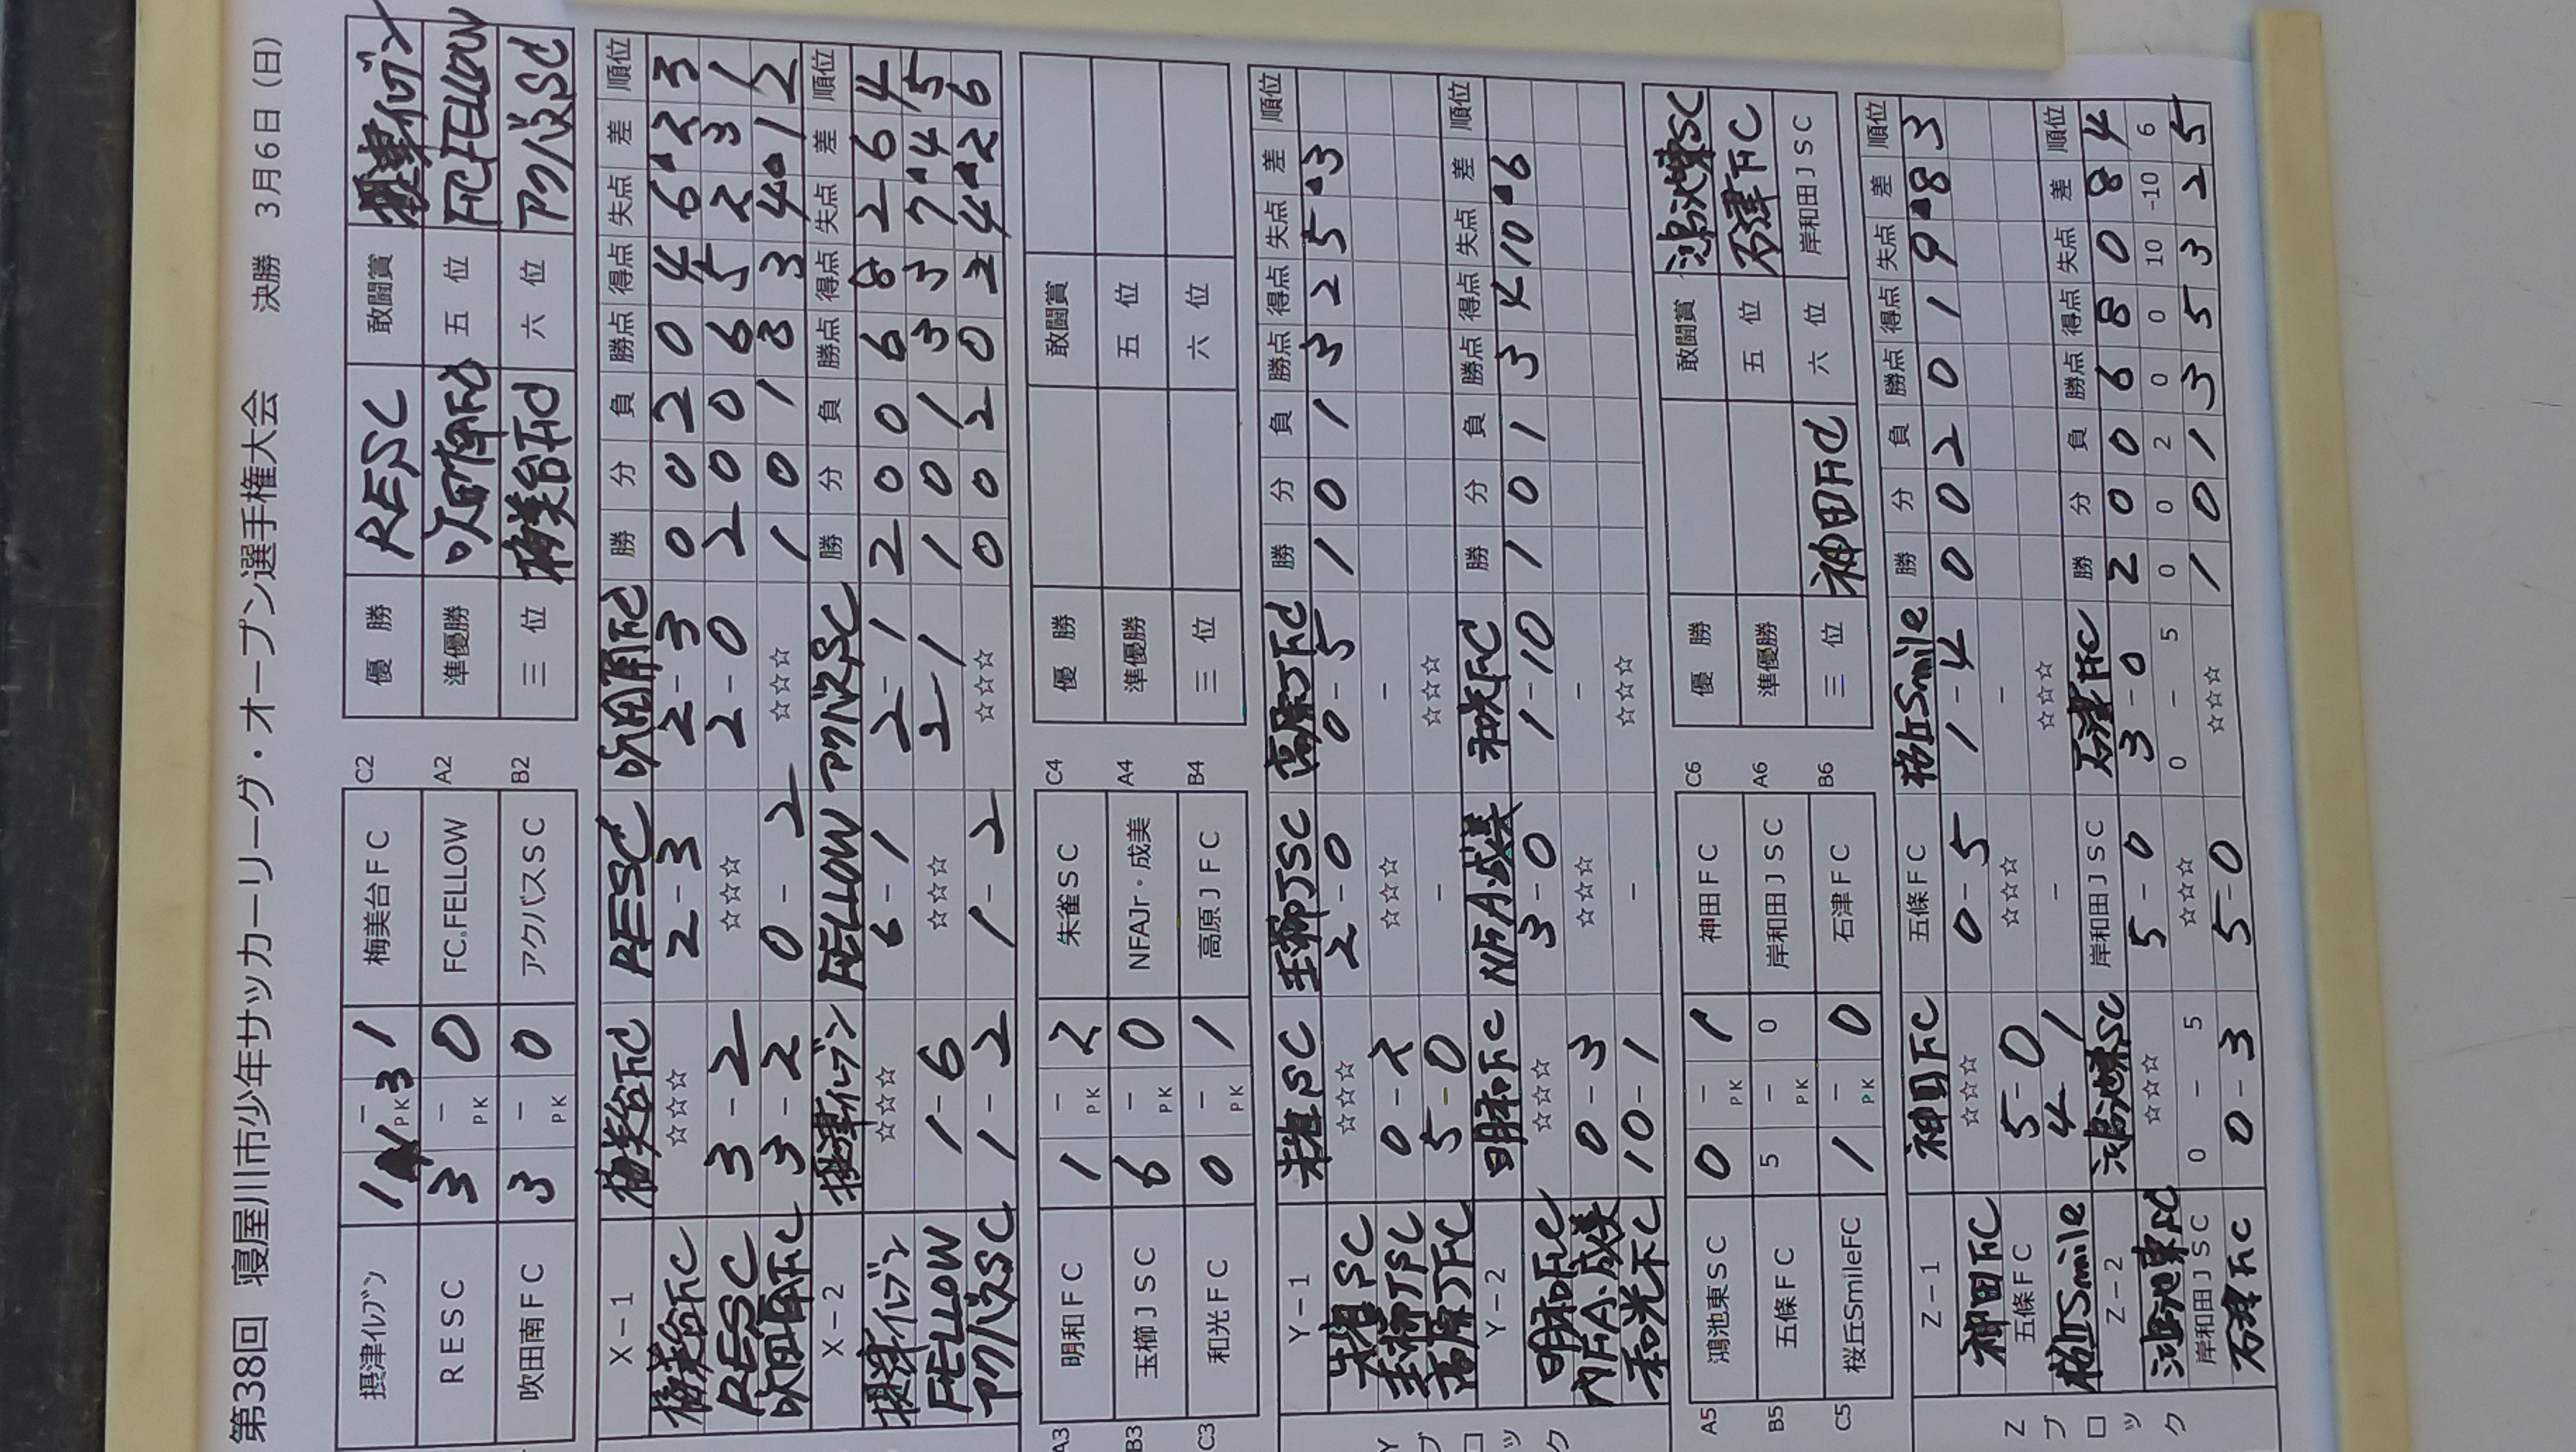 第38回 寝屋川市少年サッカーリーグ・オープン選手権大会 決勝 3月6日(日)
摂津イレブン 1 - 1 PK 3 梅美台FC C2 優勝 RESC 敢闘賞 摂津イレブン
RESC 3 - 0 PK FC.FELLOW A2 準優勝 吹田南FC 五位 FC.FELLOW
吹田南FC 3 - 0 PK アクバスSC B2 三位 梅美台FC 六位 アクバスSC
X-1 梅美台FC RESC 吹田南FC 勝 分 負 勝点 得点 失点 差 順位
梅美台FC ☆☆☆ 2-3 2-3 0 0 2 0 4 6 ▲2 3
RESC 3-2 ☆☆☆ 2-0 2 0 0 6 5 2 3 1
吹田南FC 3-2 0-2 ☆☆☆ 1 0 1 3 3 4 ▲1 2
X-2 摂津イレブン FELLOW アクバスSC 勝 分 負 勝点 得点 失点 差 順位
摂津イレブン ☆☆☆ 6-1 2-1 2 0 0 6 8 2 6 4
FELLOW 1-6 ☆☆☆ 2-1 1 0 1 3 3 7 ▲4 5
アクバスSC 1-2 1-2 ☆☆☆ 0 0 2 0 2 4 ▲2 6
A3 明和FC 1 - 2 PK 朱雀SC C4 優勝 敢闘賞
B3 玉櫛JSC 6 - 0 PK NFAJr・成美 A4 準優勝 五位
C3 和光FC 0 - 1 PK 高原JFC B4 三位 六位
Y-1 朱雀SC 玉櫛JSC 高原JFC 勝 分 負 勝点 得点 失点 差 順位
朱雀SC ☆☆☆ 2-0 0-5 1 0 1 3 2 5 ▲3
玉櫛JSC 0-2 ☆☆☆ -
高原JFC 5-0 - ☆☆☆
Y-2 明和FC NFA成美 和光FC 勝 分 負 勝点 得点 失点 差 順位
明和FC ☆☆☆ 3-0 1-10 1 0 1 3 4 10 ▲6
NFA・成美 0-3 ☆☆☆ -
和光FC 10-1 - ☆☆☆
Yブロック
A5 鴻池東SC 0 - 1 PK 神田FC C6 優勝 敢闘賞 鴻池東SC
B5 五條FC 5 - 0 PK 岸和田JSC A6 準優勝 五位 石津FC
C5 桜丘SmileFC 1 - 0 PK 石津FC B6 三位 神田FC 六位 岸和田JSC
Z-1 神田FC 五條FC 桜丘Smile 勝 分 負 勝点 得点 失点 差 順位
神田FC ☆☆☆ 0-5 1-4 0 0 2 0 1 9 ▲8 3
五條FC 5-0 ☆☆☆ -
桜丘Smile 4 1 - ☆☆☆
Z-2 鴻池東SC 岸和田JSC 石津FC 勝 分 負 勝点 得点 失点 差 順位
鴻池東SC ☆☆☆ 5-0 3-0 2 0 0 6 8 0 8 4
岸和田JSC 0 - 5 ☆☆☆ 0 - 5 0 0 2 0 0 10 -10 6
石津FC 0-3 5-0 ☆☆☆ 1 0 1 3 5 3 2 5
Zブロック